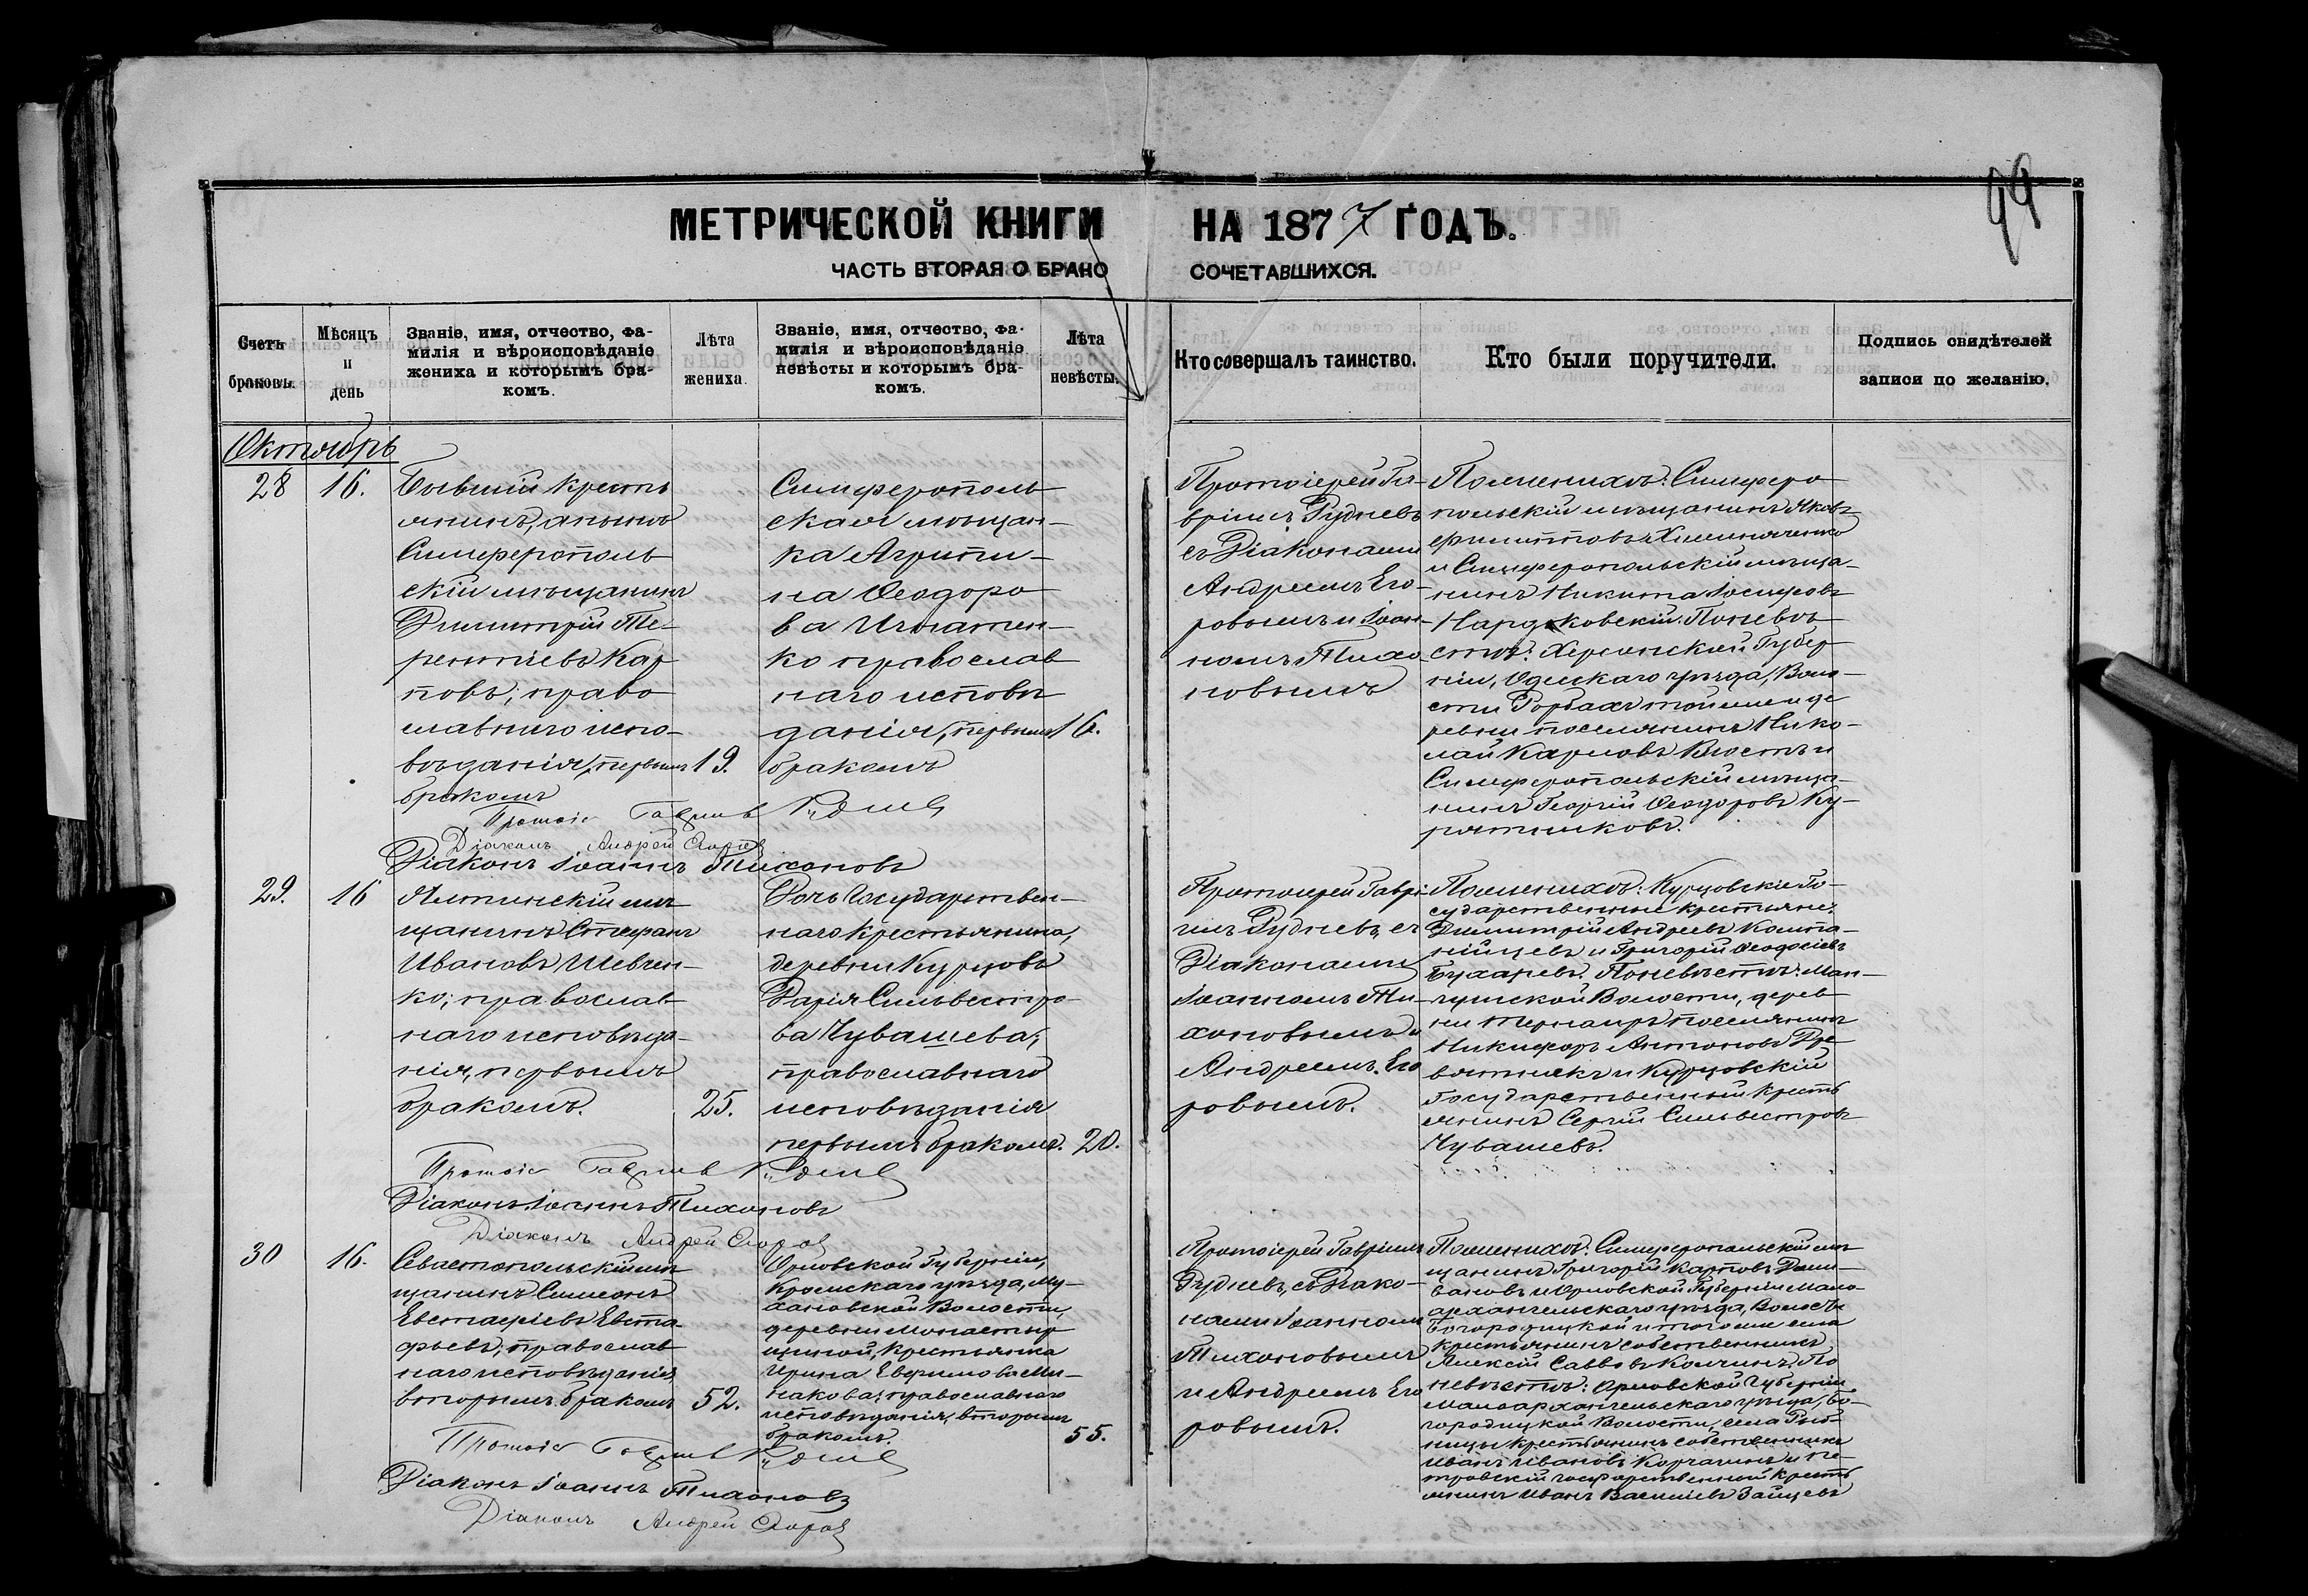 99
МЕТРИЧЕСКОЙ КНИГИ НА 1877 ГОДЪ.
ЧАСТЬ ВТОРАЯ О БРАКО СОЧЕТАВШИХСЯ.
Счетъ
браковъ.
Мѣсяцъ
и
день
Званіе, имя, отчество, фа-
милія и вѣроисповѣданіе
жениха и которымъ бра-
комъ.
Лѣта
жениха.
Званіе, имя, отчество, фа-
милія и вѣроисповѣданіе
невѣсты и которымъ бра-
комъ.
Лѣта
невѣсты.
Кто совершалъ таинство.
Кто были поручители.
Подпись свидѣтелей
записи по желанію.
Октябрь
28
16.
Бывшій кресть
янинъ, а нынѣ
Симферополь
скій мѣщанинъ
Димитрій Те-
рентіевъ Кар
повъ; право
славнаго испо-
вѣданія, первымъ
бракомъ
19.
Симферополь
ская мѣщан-
ка Агрипи-
на Ѳеодоро
ва Игнатен-
ко православ
наго исповѣ
данія, первымъ
бракомъ
16.
Протоіерей Га-
вріилъ Рудневъ
съ Діаконами
Андреемъ Его-
ровымъ и Іоан-
номъ Тихо
новымъ
По женихѣ: Симферо
польскій мѣщанинъ Яковъ
и Симферопольскій мѣща-
нинъ Никита Іосифовъ
По невѣ
стѣ: Херсонской Губер
ніи, Одесскаго уѣзда, Воло-
сти той же де
ревни поселянинъ Нико-
лай Карловъ и
Симферопольскій мѣща-
нинъ Георгій Ѳеодоровъ Ку-
рятниковъ.
Протоіе Гавріилъ Рудневъ
Діаконъ Андрей Егоровъ
Діаконъ Іоаннъ Тихоновъ
29.
16
Ялтинскій мѣ
щанинъ Стефанъ
Ивановъ Шевчен-
ко; православ
наго исповѣда-
нія, первымъ
бракомъ.
25.
Дочь Государствен-
наго крестьянина,
деревни Курцовъ
Дарія Сильвестро-
ва Чувашева;
православнаго
исповѣданія
первымъ бракомъ.
20.
Протоіерей Гаврі-
илъ Рудневъ, съ
Діаконами
Іоанномъ Ти-
хоновымъ и
Андреемъ Его
ровымъ.
По женихѣ: Курцовскіе Го-
сударственные крестьяне:
Димитрій Андреевъ Компа-
нійцевъ и Григорій Ѳеодосіевъ
Бухаревъ. По невѣстѣ: Ман-
гушской Волости, дерев
ни поселянинъ
Никифоръ Антоновъ Дре
вятникъ и Курцовскій
Государственный кресть
янинъ Сергій Сильвестровъ
Чувашевъ.
Протоіе Гавріилъ Рудневъ
Діаконъ Іоаннъ Тихоновъ
Діаконъ Андрей Егоровъ
30
16.
Севастопольскій мѣ
щанинъ Симеонъ
Евстафіевъ Евста-
фьевъ; православ
наго исповѣданія
вторымъ бракомъ
52.
Орловской Губерніи,
Кромскаго уѣзда, Му-
хановской Волости,
деревни Монастыр
щиной, крестьянка
Ирина Ефимова Ми-
накова; православнаго
исповѣданія, вторымъ
бракомъ.
55.
Протоіерей Гавріилъ
Рудневъ, съ Діако-
нами Іоанномъ
Тихоновымъ
и Андреемъ Его
ровымъ.
По женихѣ: Симферопольскій мѣ
щанинъ Григорій Карповъ
и Орловской Губерніи Мало-
архангельскаго уѣзда, Волости
Богородицкой и того же села
крестьянинъ собственникъ
Алексій Саввовъ Комчинъ. По
невѣстѣ: Орловской Губерніи
Малоархангельскаго уѣзда, Бо-
городицкой Волости, села
крестьянинъ собственникъ
Иванъ Ивановъ Корчагинъ и Пе-
тровскій государственный кресть
янинъ Иванъ Васильевъ Зайцевъ
Протоіе Гавріилъ Рудневъ
Діаконъ Іоаннъ Тихоновъ
Діаконъ Андрей Егоровъ